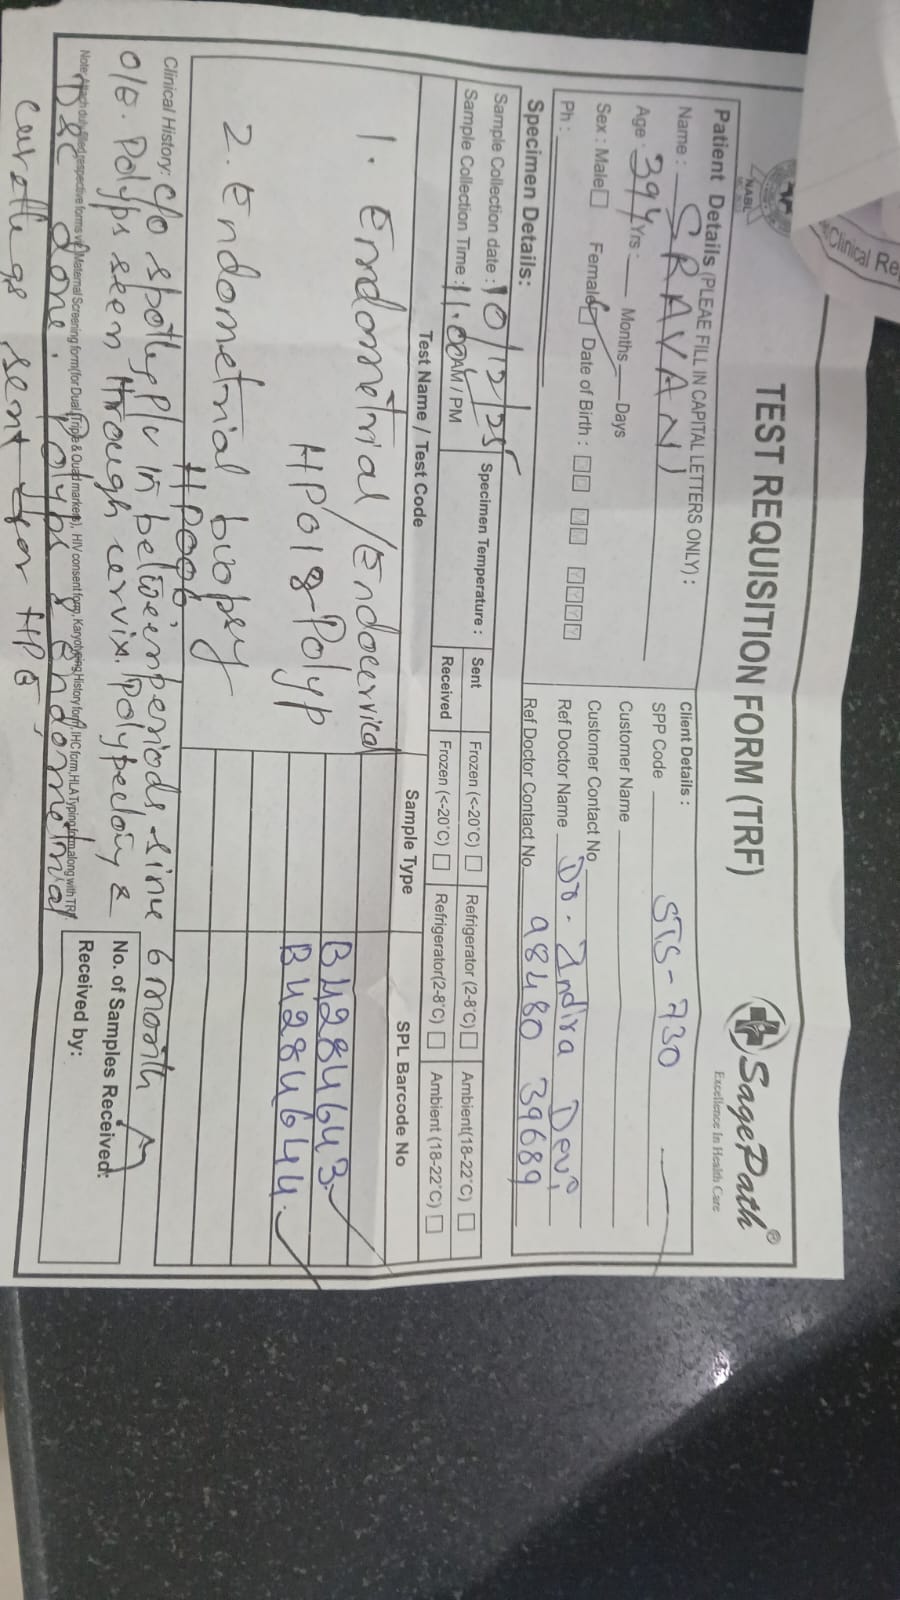 Clinical Re
NABL
TEST REQUISITION FORM (TRF)
SagePath®
Excellence In Health Care
Patient Details (PLEAE FILL IN CAPITAL LETTERS ONLY) :
Name : SRAVANI
Age : 39Y Yrs : Months Days
Sex : Male Female Date of Birth : D D M M Y Y Y Y
Ph :
Client Details :
SPP Code STS-730
Customer Name
Customer Contact No
Ref Doctor Name Dr. Indira Devi
Ref Doctor Contact No 98480 39689
Specimen Details:
Sample Collection date : 10/12/25
Sample Collection Time : 11.00 AM / PM
Specimen Temperature :
Sent Frozen (<-20°C) Refrigerator (2-8°C) Ambient(18-22°C)
Received Frozen (<-20°C) Refrigerator(2-8°C) Ambient (18-22°C)
Test Name / Test Code Sample Type SPL Barcode No
1. Endometrial/Endocervical
B4284643
HP018-Polyp B4284644
2. Endometrial biopsy
HP006
Clinical History: c/o spotting P/V in between periods, since 6 month
O/E. Polyps seen through cervix. Polypectomy &
Note: Attach duly filled respective forms viz. Maternal Screening form(for Dual, Triple & Quad markers), HIV consent form, Karyotyping History form, IHC form, HLA Typing form along with TRF.
D&C done. Polyps & endometrial
curettings sent for HPE
No. of Samples Received:
Received by: